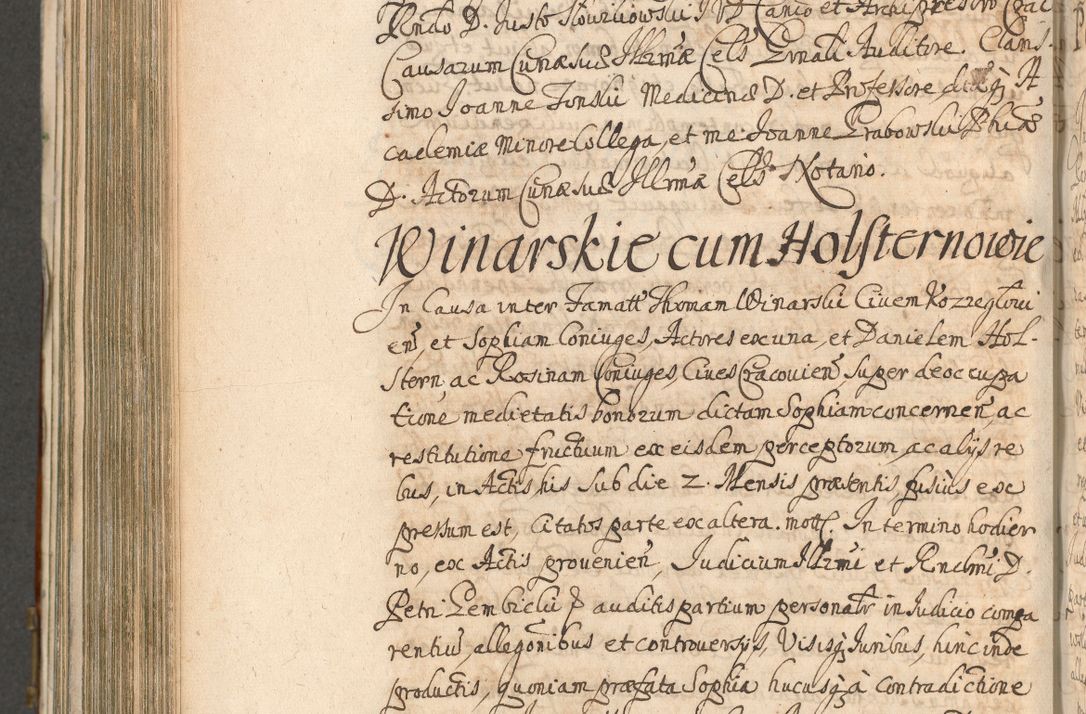 Rndo D. Justo Słowikowski JVD Canco et Archipresbro
Causarum Curiæ suæ Illrmæ Cels Ernali Auditore. Claris-
simo Joanne Tonski Medicinæ D. et Professore, A
cademiæ Minore Collega, et me Joanne Grabowski Phiæ
D. Actorum Curiæ suæ Illrmæ Cels Notario.
Winarskie cum Holsternowie
In Causa inter Famatt Thomam Winarski Civem Kozzegłowi
en, et Sophiam Coniuges, Actores ex una, et Danielem Hol-
stern ac Rosinam Coniuges, Cives Cracovien, super deoccupa
tione medietatis bonorum dictam Sophiam concernen, ac
restitutione fructuum ex eisdem perceptorum, ac alijs re
bus, in Actis his sub die 2. Mensis præsentis, fusius ex
pressum est, Citatos parte ex altera. mott. In termino hodier
no, ex Actis provenien, Judicium Illrmi et Rndmi D.
Petri Gembicki P auditis partium personalr in Judicio compa
rentiu, allegonibus et controversijs, Visisq Juribus, hinc inde
productis, quoniam præfata Sophia hucusq à contradictione